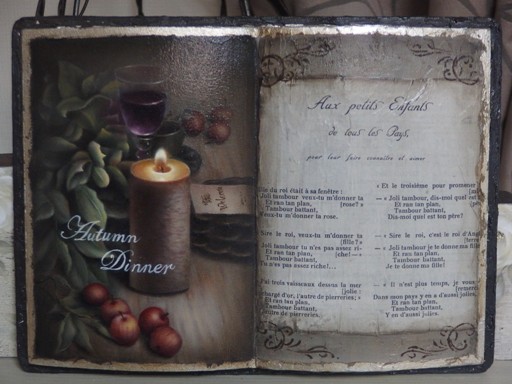 Autumn
Dinner
Aux petits Enfants
de tous les Pays,
pour leur faire connaître et aimer
du roi était à sa fenêtre :
Joli tambour, veux-tu m'donner ta
Et ran tan plan, rose? »
Tambour battant,
Veux-tu m'donner ta rose.
Sire le roi, veux-tu m'donner ta
Et ran tan plan, fille? »
Joli tambour tu n'es pas assez ri-
Et ran tan plan, che! — »
Tambour battant,
Tu n'es pas assez riche!...
J'ai trois vaisseaux dessus la mer
jolie :
chargé d'or, l'autre de pierreries; »
Et ran tan plan,
Tambour battant,
l'autre de pierreries.
« Et le troisième pour promener
— « Joli tambour, dis-moi quel est
Et ran tan plan,
Tambour battant,
Dis-moi quel est ton père?
— « Sire le roi, c'est le roi d'
— « Joli tambour je te donne ma fille
Et ran tan plan,
Tambour battant,
Je te donne ma fille!
— « Il n'est plus temps, je vous
Dans mon pays y en a d'aussi jolies.
Et ran tan plan,
Tambour battant,
Y en a d'aussi jolies.